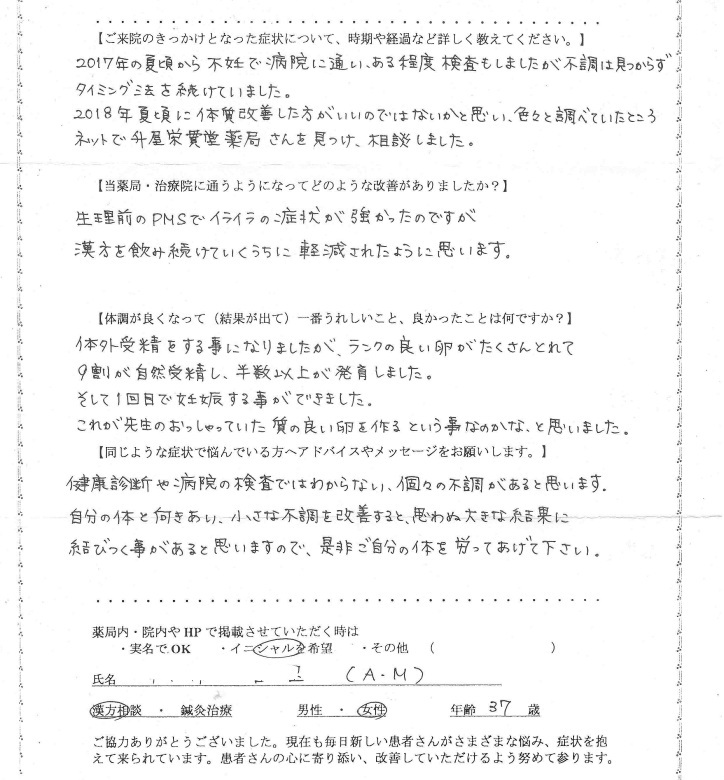 【ご来院のきっかけとなった症状について、時期や経過など詳しく教えてください。】
2017年の夏頃から 不妊で病院に通い、ある程度 検査もしましたが不調は見つからず
タイミング法を続けていました。
2018年夏頃に体質改善した方がいいのではないかと思い、色々と調べていたところ
ネットで升屋栄貫堂薬局さんを見つけ、相談しました。
【当薬局・治療院に通うようになってどのような改善がありましたか？】
生理前のPMSでイライラの症状が強かったのですが
漢方を飲み続けていくうちに 軽減されたように思います。
【体調が良くなって（結果が出て）一番うれしいこと、良かったことは何ですか？】
体外受精をする事になりましたが、ランクの良い卵がたくさんとれて
9割が自然受精し、半数以上が発育しました。
そして1回目で妊娠する事ができました。
これが先生のおっしゃっていた質の良い卵を作るという事なのかな、と思いました。
【同じような症状で悩んでいる方へアドバイスやメッセージをお願いします。】
健康診断や病院の検査ではわからない、個々の不調があると思います。
自分の体と向きあい、小さな不調を改善すると、思わぬ大きな結果に
結びつく事があると思いますので、是非ご自分の体を労ってあげて下さい。
薬局内・院内やHPで掲載させていただく時は
・実名でOK ・イニシャルを希望 ・その他 （ ）
氏名 (A・M)
漢方相談 ・ 鍼灸治療 男性 ・ 女性 年齢 37 歳
ご協力ありがとうございました。現在も毎日新しい患者さんがさまざまな悩み、症状を抱
えて来られています。患者さんの心に寄り添い、改善していただけるよう努めて参ります。